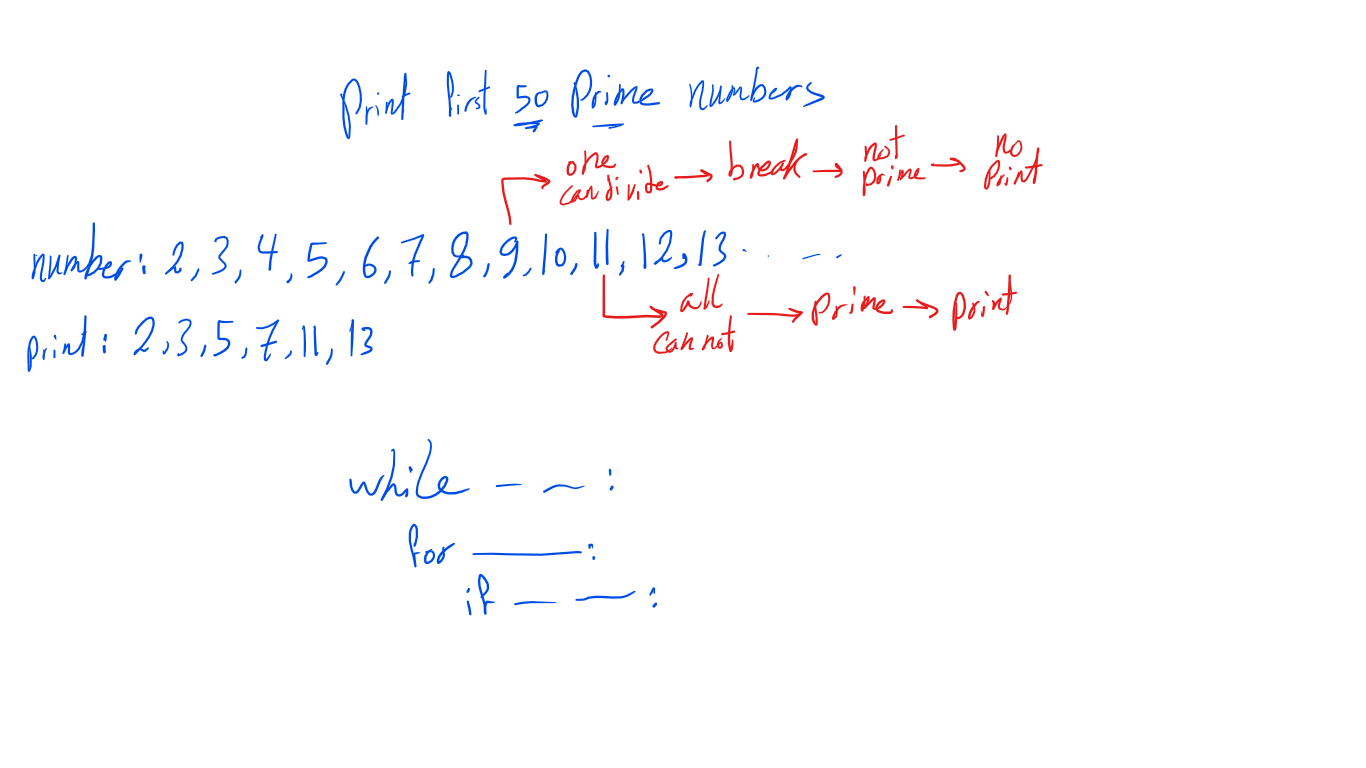 Print first 50 Prime numbers
one can divide → break → not prime → no Print
number: 2, 3, 4, 5, 6, 7, 8, 9, 10, 11, 12, 13 . . - - .
all can not → Prime → print
print: 2, 3, 5, 7, 11, 13
while — ~ :
for ——— :
if — — :